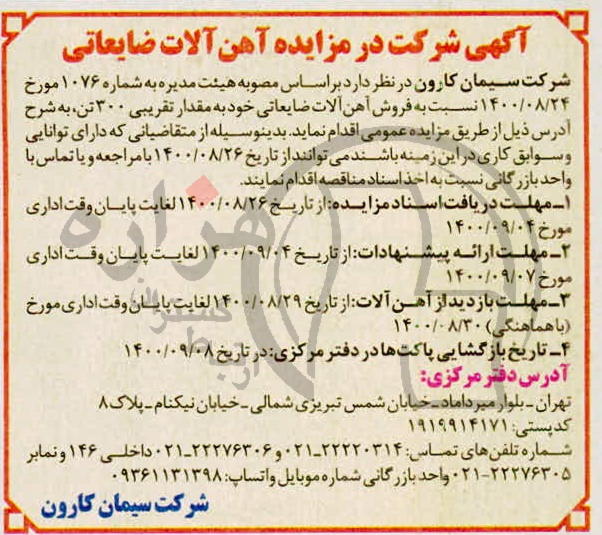 آگهی شرکت در مزایده آهن آلات ضایعاتی
شرکت سیمان کارون در نظر دارد براساس مصوبه هیئت مدیره به شماره ۱۰۷۶ مورخ
۱۴۰۰/۰۸/۲۴ نسبت به فروش آهن آلات ضایعاتی خود به مقدار تقریبی ۳۰۰ تن، به شرح
آدرس ذیل از طریق مزایده عمومی اقدام نماید. بدینوسیله از متقاضیانی که دارای توانایی
و سوابق کاری در این زمینه باشند می توانند از تاریخ ۱۴۰۰/۰۸/۲۶ با مراجعه و یا تماس با
واحد بازرگانی نسبت به اخذ اسناد مناقصه اقدام نمایند.
۱ـ مهلت دریافت اسناد مزایده: از تاریخ ۱۴۰۰/۰۸/۲۶ لغایت پایان وقت اداری
مورخ ۱۴۰۰/۰۹/۰۴
۲ـ مهلت ارائه پیشنهادات: از تاریخ ۱۴۰۰/۰۹/۰۴ لغایت پایان وقت اداری
مورخ ۱۴۰۰/۰۹/۰۷
۳ـ مهلت بازدید از آهن آلات: از تاریخ ۱۴۰۰/۰۸/۲۹ لغایت پایان وقت اداری مورخ
(با هماهنگی) ۱۴۰۰/۰۸/۳۰
۴ـ تاریخ بازگشایی پاکت ها در دفتر مرکزی: در تاریخ ۱۴۰۰/۰۹/۰۸
آدرس دفتر مرکزی:
تهران ـ بلوار میرداماد ـ خیابان شمس تبریزی شمالی ـ خیابان نیکنام ـ پلاک ۸
کدپستی: ۱۹۱۹۹۱۴۱۷۱
شماره تلفن های تماس: ۲۲۲۲۰۳۱۴-۰۲۱ و ۲۲۲۷۶۳۰۶-۰۲۱ داخلی ۱۴۶ و نمابر
۲۲۲۷۶۳۰۵-۰۲۱ واحد بازرگانی شماره موبایل واتساپ: ۰۹۳۶۱۱۳۱۳۹۸
شرکت سیمان کارون
هزاره